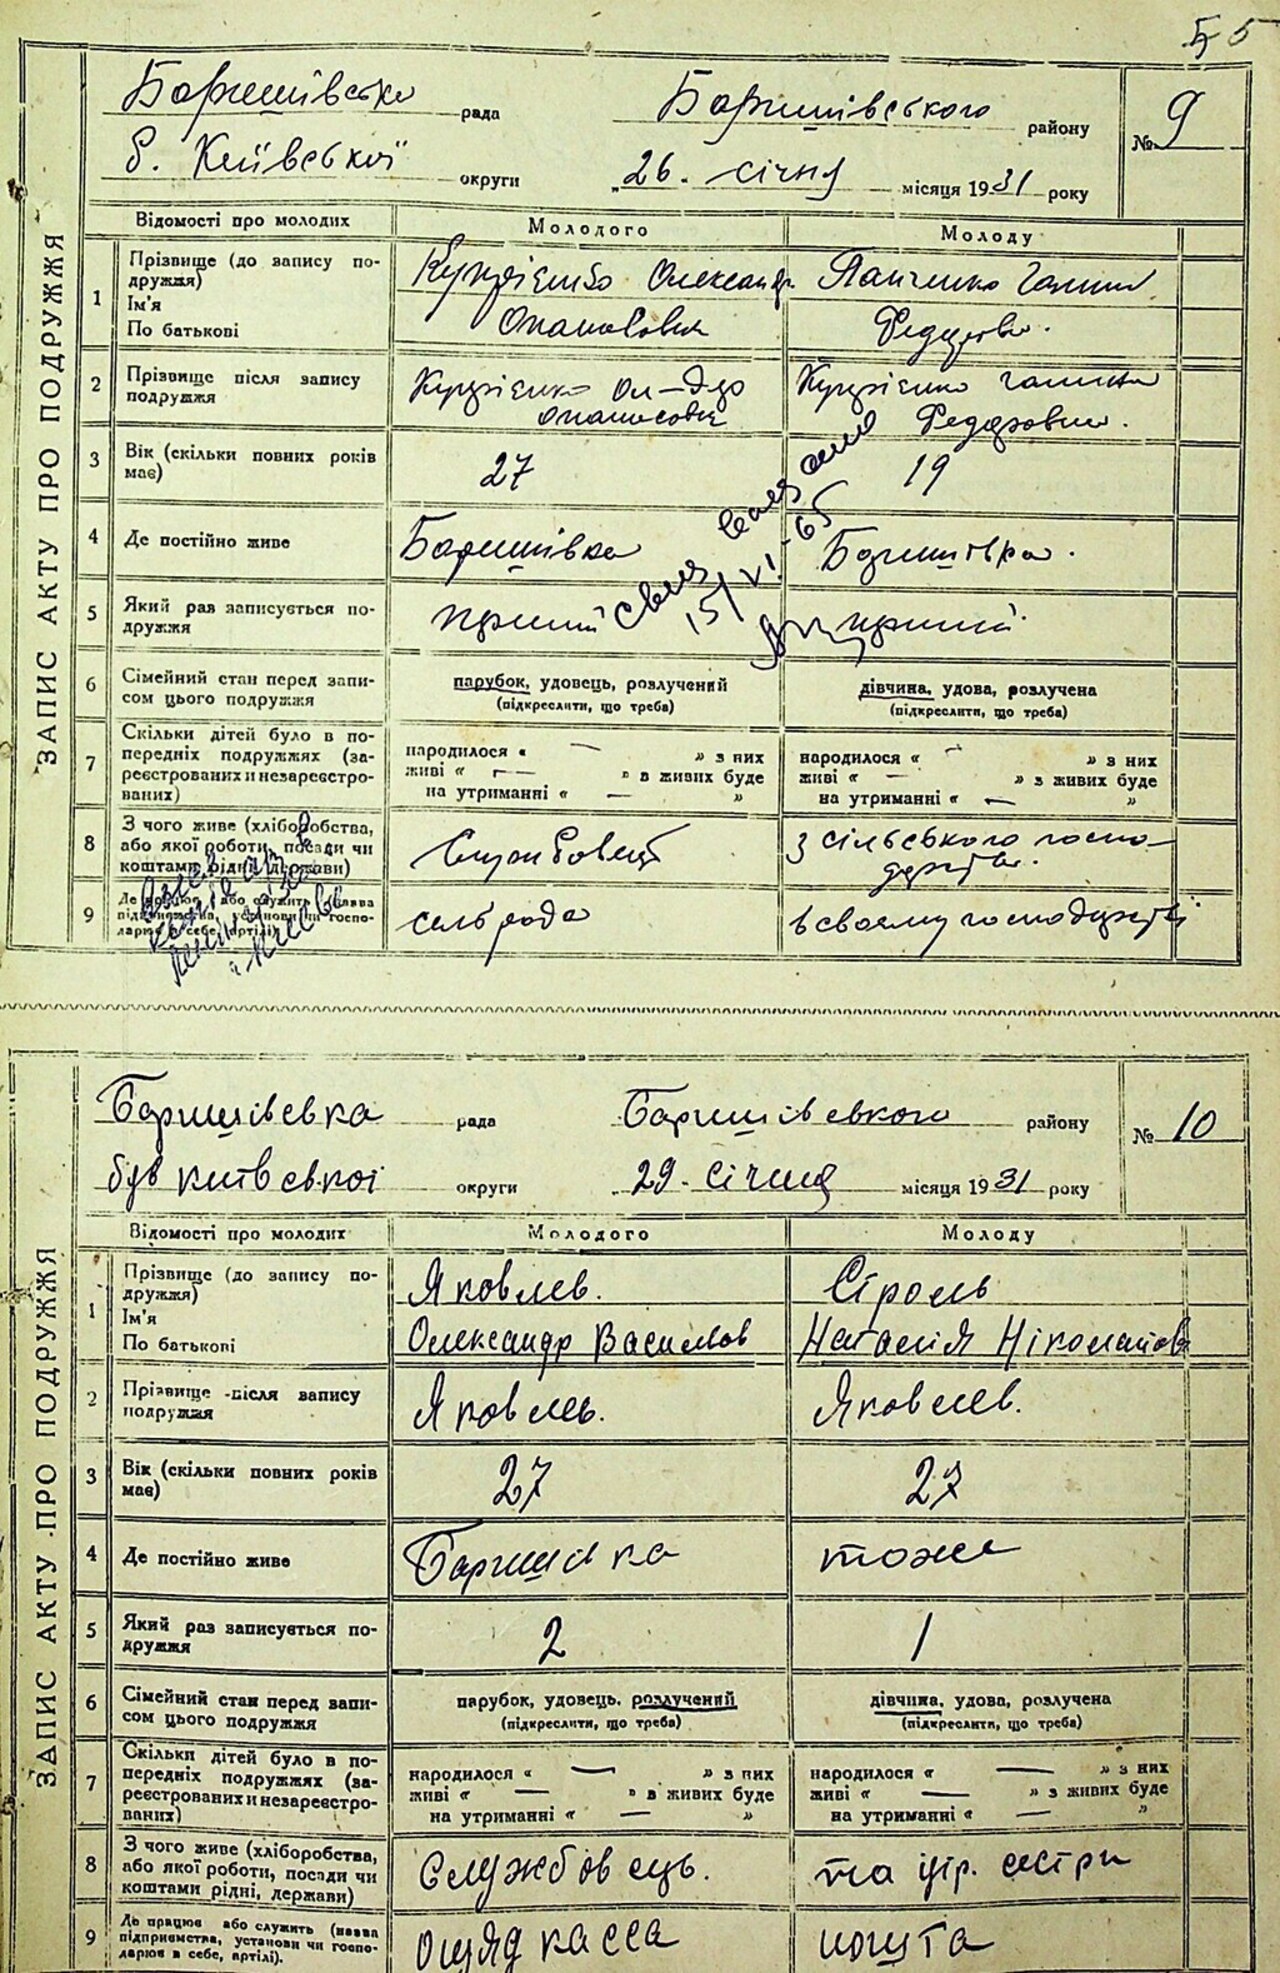 5
ЗАПИС АКТУ ПРО ПОДРУЖЖЯ
Баришівська рада Баришівського району № 9
б. Київської округи „26. січня місяця 1931 року
Відомості про молодих Молодого Молоду
1 Прізвище (до запису подружжя)
Ім'я
По батькові
Олександр Панченко Галина
Опанасович Федорівна.
2 Прізвище після запису подружжя
Опанасович Федоровна.
3 Вік (скільки повних років має) 27 19
4 Де постійно живе Баришівка Баришівка.
5 Який раз записується подружжя перший перший
15/VI-65
6 Сімейний стан перед записом цього подружжя парубок, удовець, розлучений дівчина, удова, розлучена
(підкреслити, що треба) (підкреслити, що треба)
7 Скільки дітей було в попередніх подружжях (зареєстрованих и незареєстрованих)
народилося « — » з них народилося « — » з них
живі « — » в живих буде живі « — » з живих буде
на утриманні « — » на утриманні « — »
8 З чого живе (хліборобства, або якої роботи, посади чи коштами рідні, держави) Службовець з сільського господарства.
9 Де працює або служить (назва підприємства, установи чи господарює в себе, артілі) сельрада в своему господарстві
ЗАПИС АКТУ ПРО ПОДРУЖЖЯ
Баришівська рада Баришівського району № 10
був Київської округи „29. Січня місяця 1931 року
Відомості про молодих Молодого Молоду
1 Прізвище (до запису подружжя)
Ім'я
По батькові
Яковлев. Сіроль
Олександр Василов Наталія
2 Прізвище після запису подружжя Яковлев. Яковлев.
3 Вік (скільки повних років має) 27 27
4 Де постійно живе Баришівка тоже
5 Який раз записується подружжя 2 1
6 Сімейний стан перед записом цього подружжя парубок, удовець, розлучений дівчина, удова, розлучена
(підкреслити, що треба) (підкреслити, що треба)
7 Скільки дітей було в попередніх подружжях (зареєстрованих и незареєстрованих)
народилося « — » з них народилося « — » з них
живі « — » в живих буде живі « — » з живих буде
на утриманні « — » на утриманні « — »
8 З чого живе (хліборобства, або якої роботи, посади чи коштами рідні, держави) Службовець.
9 Де працює або служить (назва підприємства, установи чи господарює в себе, артілі). Ощад касса пошта